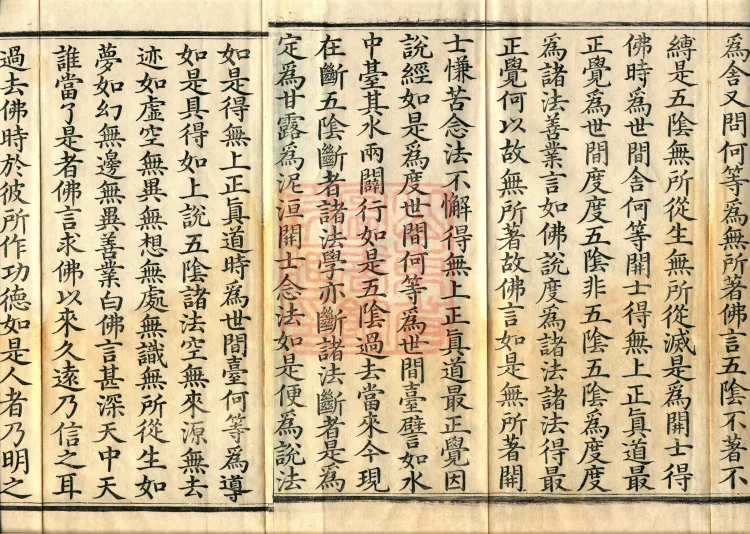 爲舍又問何等爲無所著佛言五陰不著不
縛是五陰無所從生無所從滅是爲開士得
佛時爲世間舍何等開士得無上正眞道最
正覺爲世間度度五陰非五陰五陰爲度度
爲諸法善業言如佛說度爲諸法諸法得最
正覺何以故無所著故佛言如是無所著開
士慊苦念法不懈得無上正眞道最正覺因
說經如是爲度世間何等爲世間臺譬如水
中臺其水兩闢行如是五陰過去當來今現
在斷五陰斷者諸法學亦斷諸法斷者是爲
定爲甘露爲泥洹開士念法如是便爲說法
如是得無上正眞道時爲世間臺何等爲導
如是具得如上說五陰諸法空無來源無去
迹如虛空無異無想無處無識無所從生如
夢如幻無邊無異善業白佛言甚深天中天
誰當了是者佛言求佛以來久遠乃信之耳
過去佛時於彼所作功德如是人者乃明之